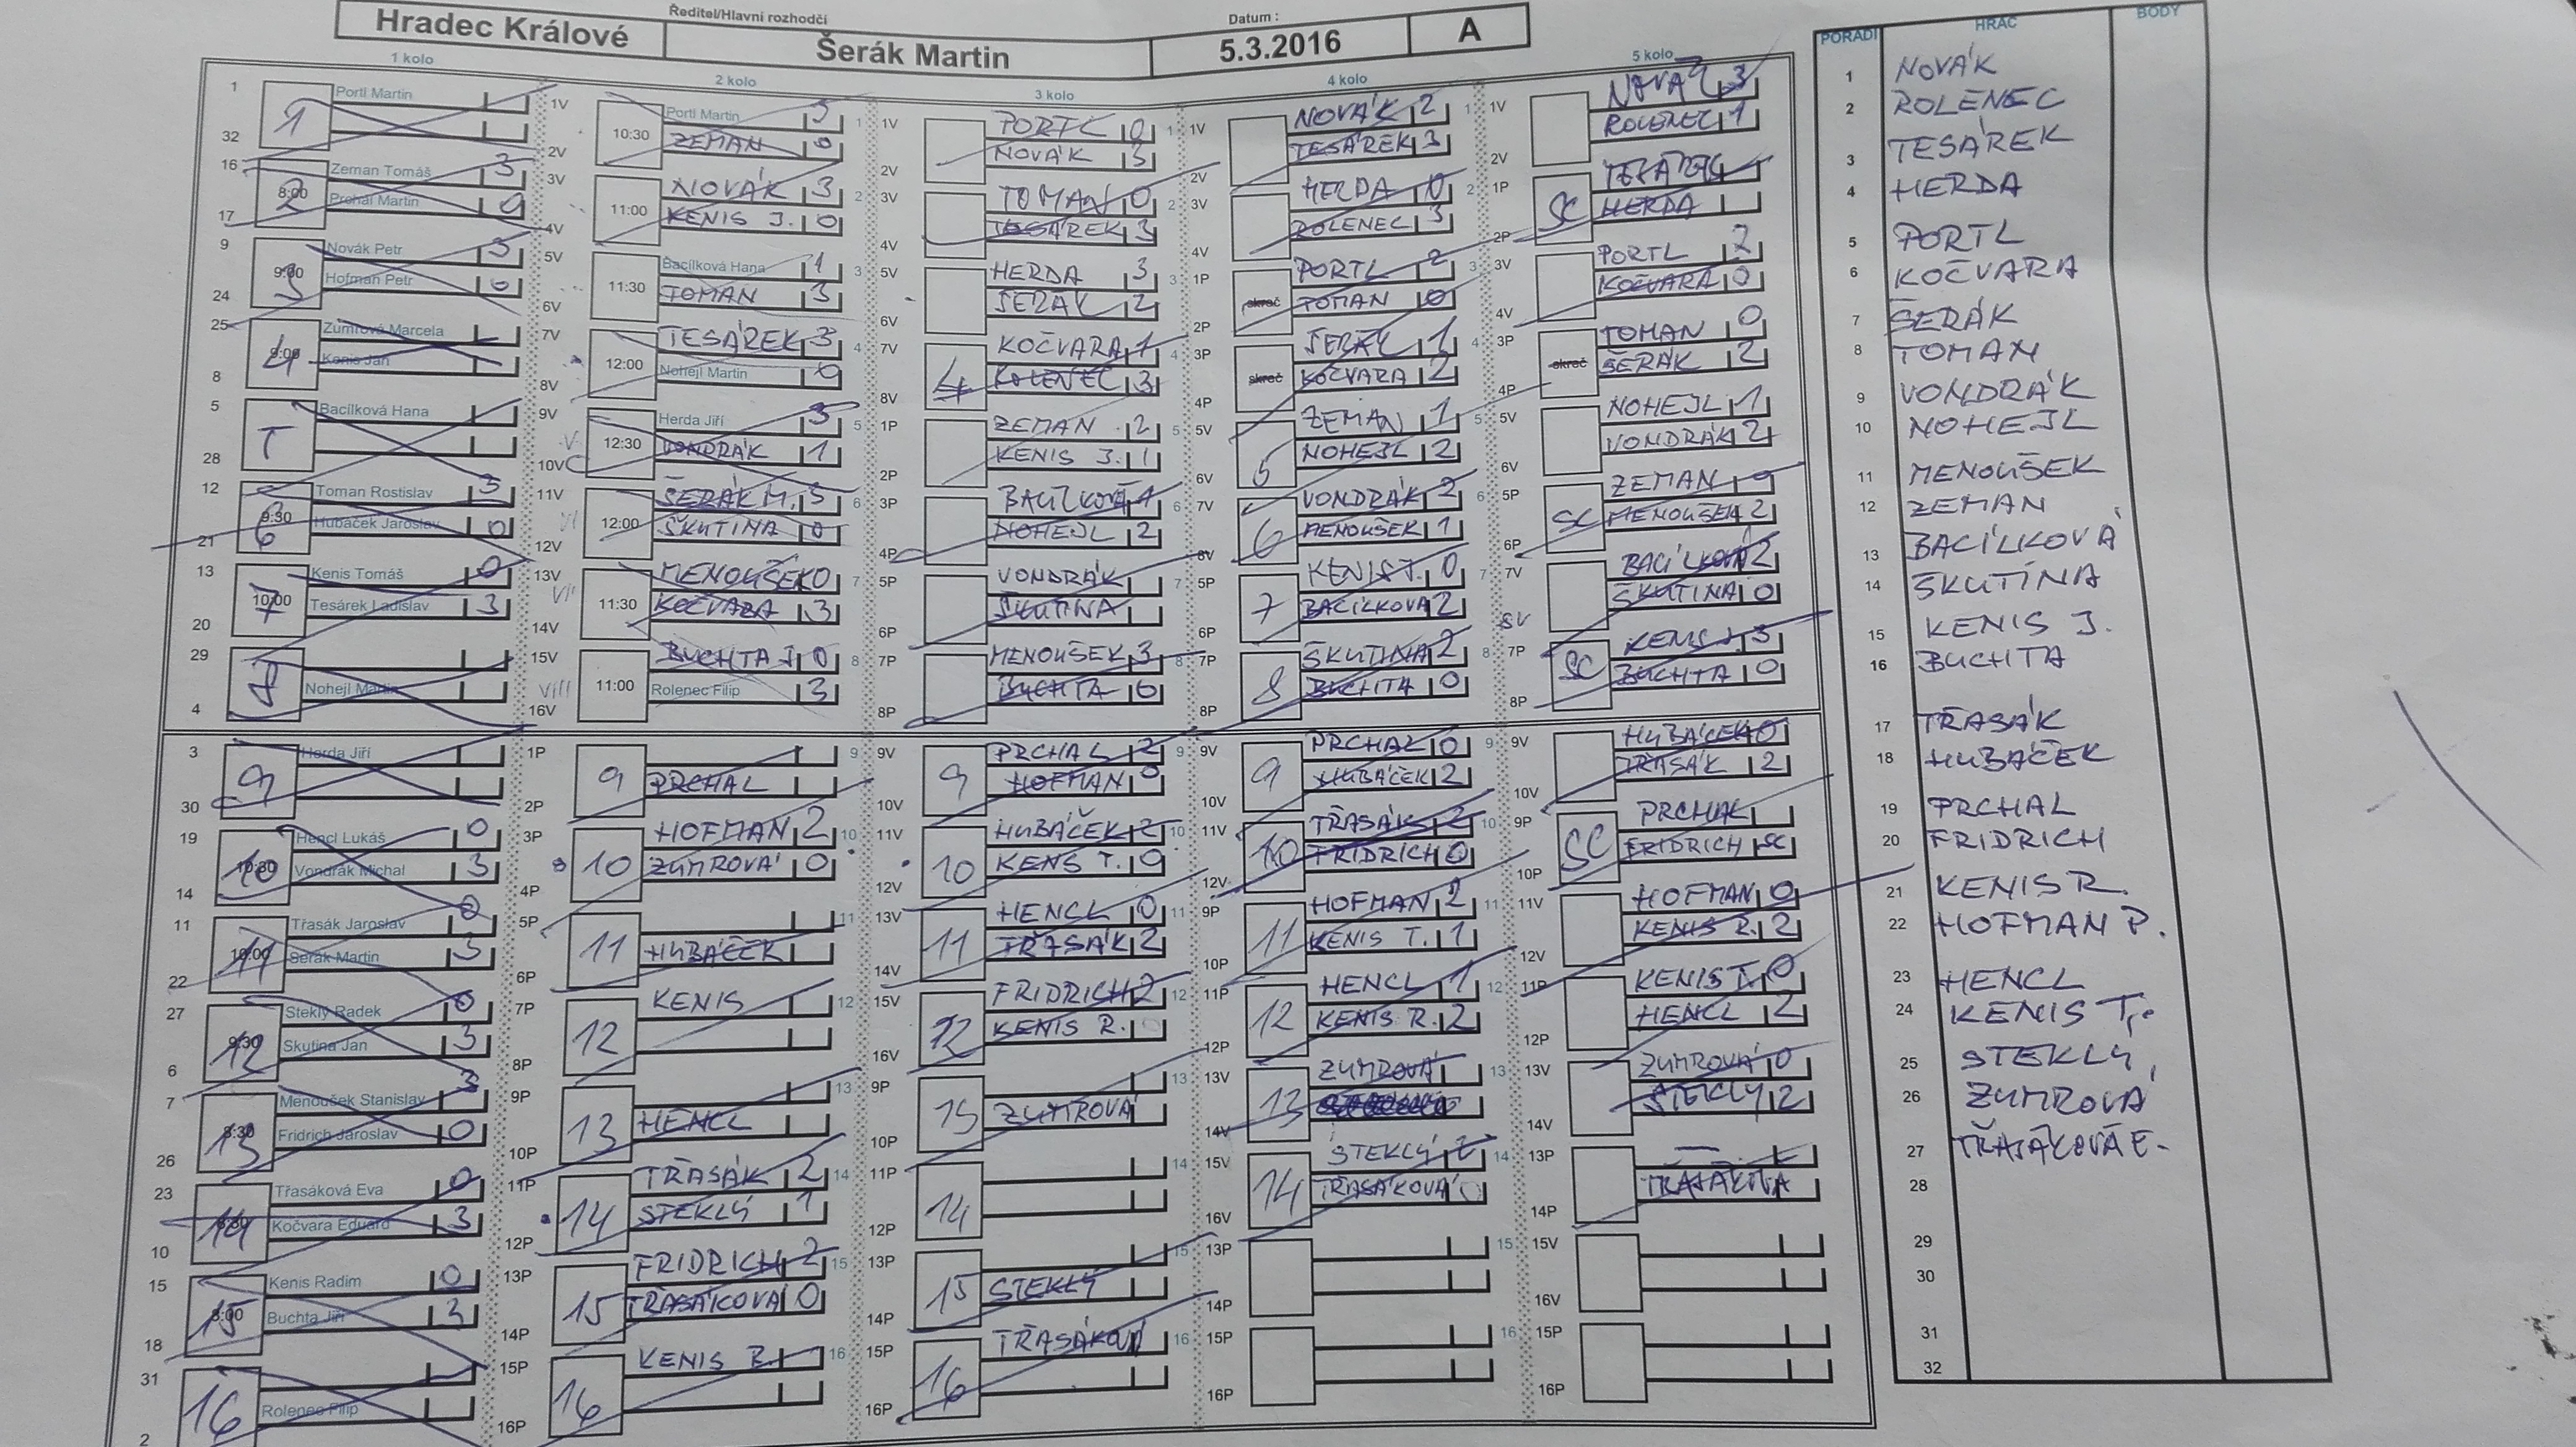 Ředitel/Hlavní rozhodčí
Datum :
Hradec Králové Šerák Martin 5.3.2016 A
1 kolo
1 Portl Martin
32
16 Zeman Tomáš 3
17 Prchal Martin 0
9 Novák Petr 3
24 Hofman Petr 0
25 Zumrová Marcela
8 Kenis Jan
5 Bacílková Hana
28
12 Toman Rostislav 3
21 Hubáček Jaroslav 0
13 Kenis Tomáš 0
20 Tesárek Ladislav 3
29
4 Nohejl Martin
3 Herda Jiří
30
19 Hencl Lukáš 0
14 Vondrák Michal 3
11 Třasák Jaroslav 0
22 Šerák Martin 3
27 Steklý Radek 0
6 Skutina Jan 3
7 Menoušek Stanislav 3
26 Fridrich Jaroslav 0
23 Třasáková Eva 0
10 Kočvara Eduard 3
15 Kenis Radim 0
18 Buchta Jiří 3
31
2 Rolenec Filip
2 kolo
10:30
1V Portl Martin 3
2V ZEMAN 0
11:00
3V NOVÁK 3
4V KENIS J. 0
11:30
5V Bacílková Hana 1
6V TOMAN 3
12:00
7V TESÁREK 3
8V Nohejl Martin 0
12:30
9V Herda Jiří 3
10V VONDRÁK 1
12:00
11V ŠERÁK M. 3
12V ŠKUTINA 0
11:30
13V MENOUŠEK 0
14V KOČVARA 3
11:00
15V BUCHTA J 0
16V Rolenec Filip 3
9
1P
2P PRCHAL
10
3P HOFMAN 2
4P ZUMROVÁ 0
11
5P
6P HUBÁČEK
12
7P KENIS
8P
13
9P
10P HENCL
14
11P TŘASÁK 2
12P STEKLÝ 1
15
13P FRIDRICH 2
14P TŘASÁKOVÁ 0
16
15P KENIS R.
16P
3 kolo
1V PORTL 0
2V NOVÁK 3
3V TOMAN 0
4V TESÁREK 3
5V HERDA 3
6V ŠERÁK 2
4
7V KOČVARA 1
8V ROLENEC 3
1P ZEMAN 2
2P KENIS J. 1
3P BACÍLKOVÁ 1
4P NOHEJL 2
5P VONDRÁK
6P ŠKUTINA
7P MENOUŠEK 3
8P BUCHTA 0
9
9V PRCHAL 2
10V HOFMAN 0
10
11V HUBÁČEK 2
12V KENIS T. 0
11
13V HENCL 0
14V TŘASÁK 2
12
15V FRIDRICH 2
16V KENIS R. 0
9P
10P ZUMROVÁ
14
11P
12P
15
13P
14P STEKLÝ
16
15P TŘASÁKOVÁ
16P
4 kolo
1V NOVÁK 2
2V TESÁREK 3
3V HERDA 0
4V ROLENEC 3
skreč
1P PORTL 2
2P TOMAN 0
skreč
3P ŠERÁK 1
4P KOČVARA 2
5
5V ZEMAN 1
6V NOHEJL 2
6
7V VONDRÁK 2
8V MENOUŠEK 1
7
5P KENIS J. 0
6P BACÍLKOVÁ 2
8
7P ŠKUTINA 2
8P BUCHTA 0
9
9V PRCHAL 0
10V HUBÁČEK 2
10
11V TŘASÁK 2
12V FRIDRICH 0
11
9P HOFMAN 2
10P KENIS T. 1
12
11P HENCL 1
12P KENIS R. 2
13
13V ZUMROVÁ
14V
14
15V STEKLÝ 2
16V TŘASÁKOVÁ 0
13P
14P
15P
16P
5 kolo
1V NOVÁK 3
2V ROLENEC 1
SC
1P TESÁREK
2P HERDA
3V PORTL 2
4V KOČVARA 0
skreč
3P TOMAN 0
4P ŠERÁK 2
5V NOHEJL 1
6V VONDRÁK 2
SC
5P ZEMAN 0
6P MENOUŠEK 2
7V BACÍLKOVÁ 2
8V ŠKUTINA 0
SC
7P KENIS J. 3
8P BUCHTA 0
9V HUBÁČEK 0
10V TŘASÁK 2
SC
9P PRCHAL
10P FRIDRICH SC
11V HOFMAN 0
12V KENIS R. 2
11P KENIS T. 0
12P HENCL 2
13V ZUMROVÁ 0
14V STEKLÝ 2
13P —
14P TŘASÁKOVÁ
15V
16V
15P
16P
POŘADÍ HRÁČ BODY
1 NOVÁK
2 ROLENEC
3 TESÁREK
4 HERDA
5 PORTL
6 KOČVARA
7 ŠERÁK
8 TOMAN
9 VONDRÁK
10 NOHEJL
11 MENOUŠEK
12 ZEMAN
13 BACÍLKOVÁ
14 ŠKUTINA
15 KENIS J.
16 BUCHTA
17 TŘASÁK
18 HUBÁČEK
19 PRCHAL
20 FRIDRICH
21 KENIS R.
22 HOFMAN P.
23 HENCL
24 KENIS T.
25 STEKLÝ
26 ZUMROVÁ
27 TŘASÁKOVÁ E.
28
29
30
31
32